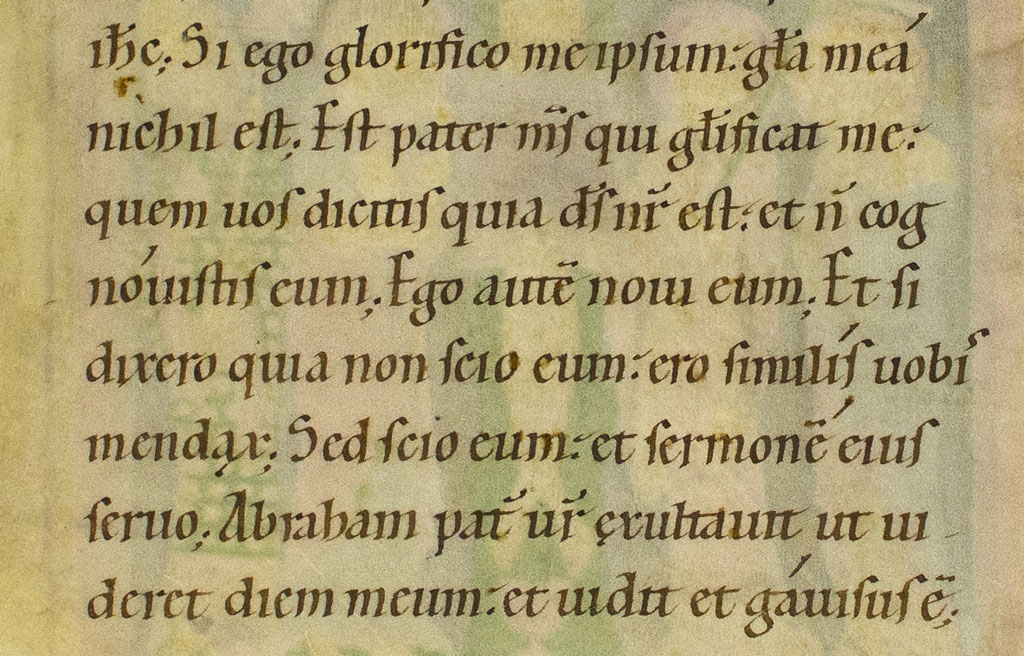 ih̄c; Si ego glorifico me ipsum: gl̄a meā
nichil est; Est pater m̄s qui gl̄ificat me:
quem uos dicitis quia d̄s nr̄ est: et n̄ cog
nouistis eum; Ego autē noui eum; Et si
dixero quia non scio eum: ero similis uobis
mendax; Sed scio eum: et sermonē eius
seruo; Abraham pat̄ ur̄ ęxultauit ut ui-
deret diem meum: et uidit et gauisus ē;